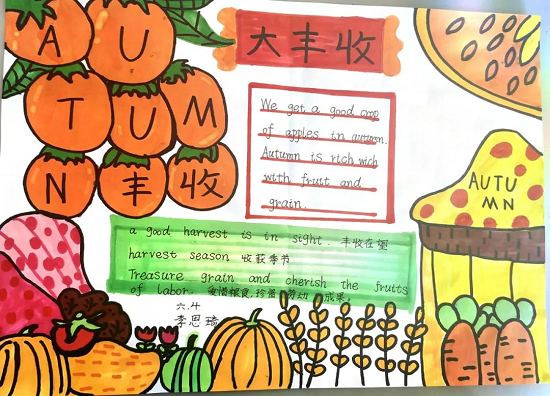 AUTUMN丰收
大丰收
We get a good crop
of apples in autumn.
Autumn is rich wich
with fruit and
grain.
AUTU
MN
a good harvest is in sight. 丰收在望
harvest season 收获季节
Treasure grain and cherish the fruits
of labor. 爱惜粮食,珍惜劳动成果。
六.牛
李思琦